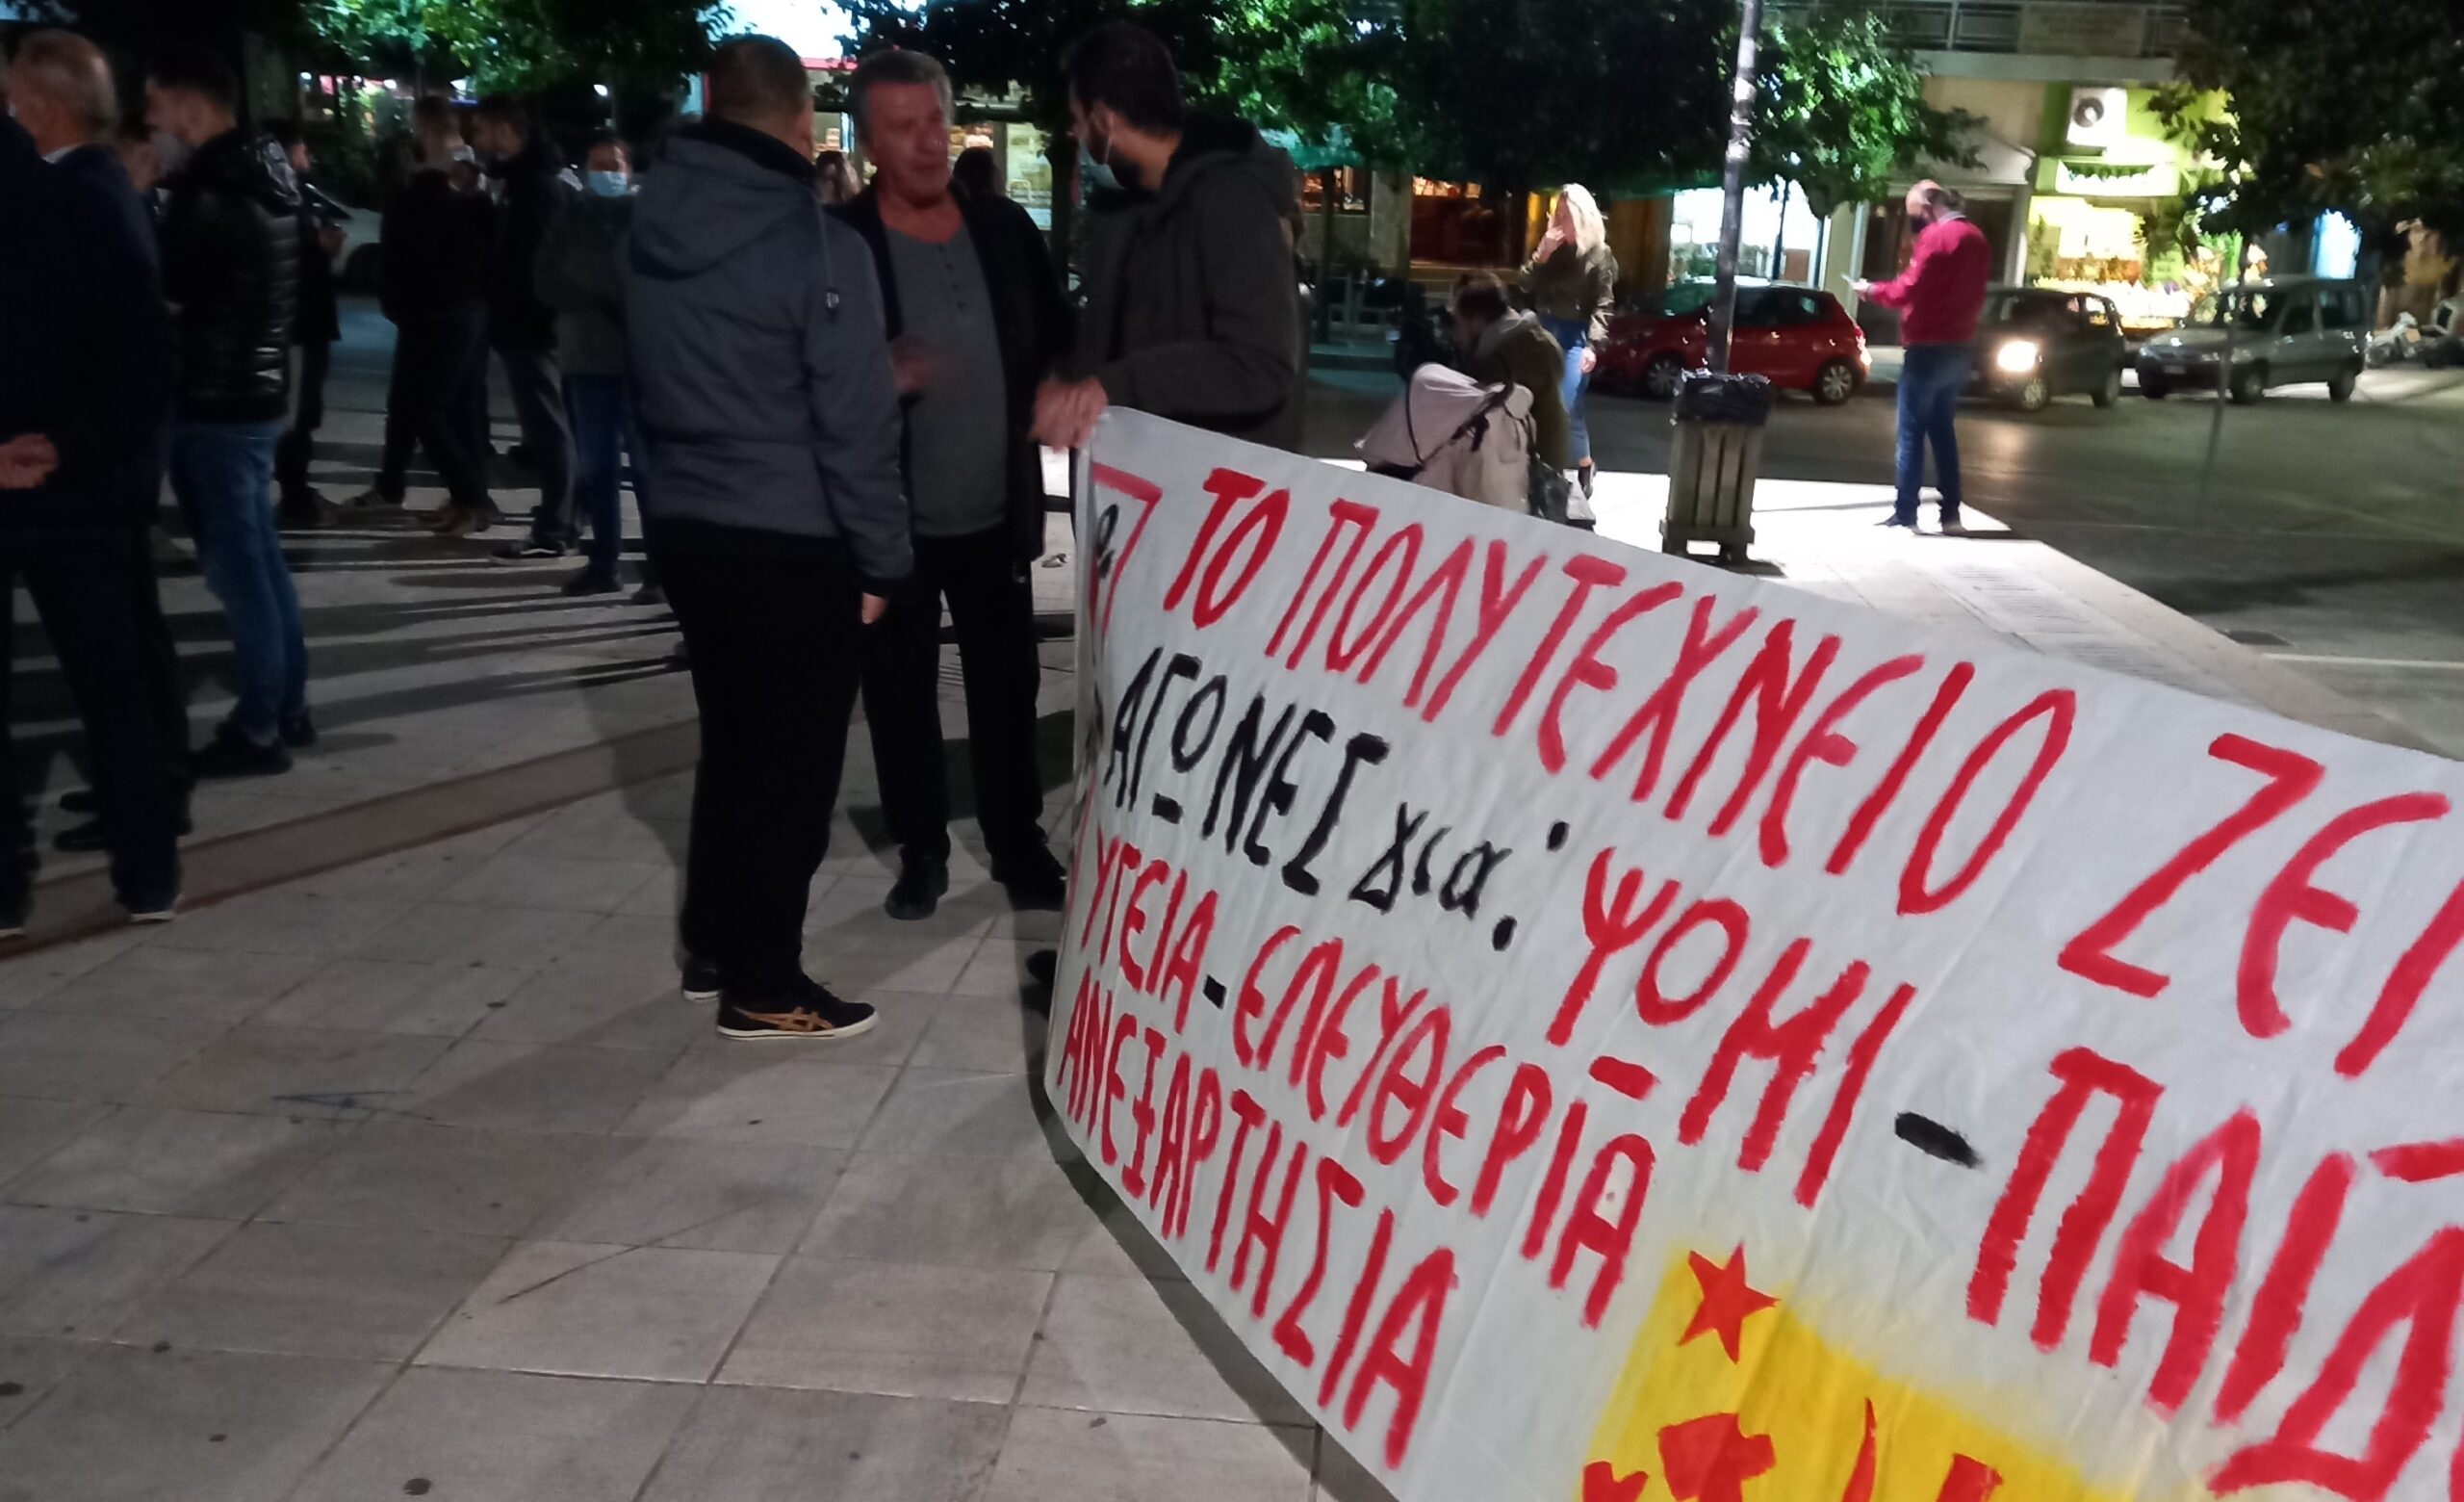 ΤΟ ΠΟΛΥΤΕΧΝΕΙΟ ΖΕΙ
ΑΓΩΝΕΣ για: ΨΟΜΙ - ΠΑΙΔ
ΥΓΕΙΑ - ΕΛΕΥΘΕΡΙΑ -
ΑΝΕΞΑΡΤΗΣΙΑ